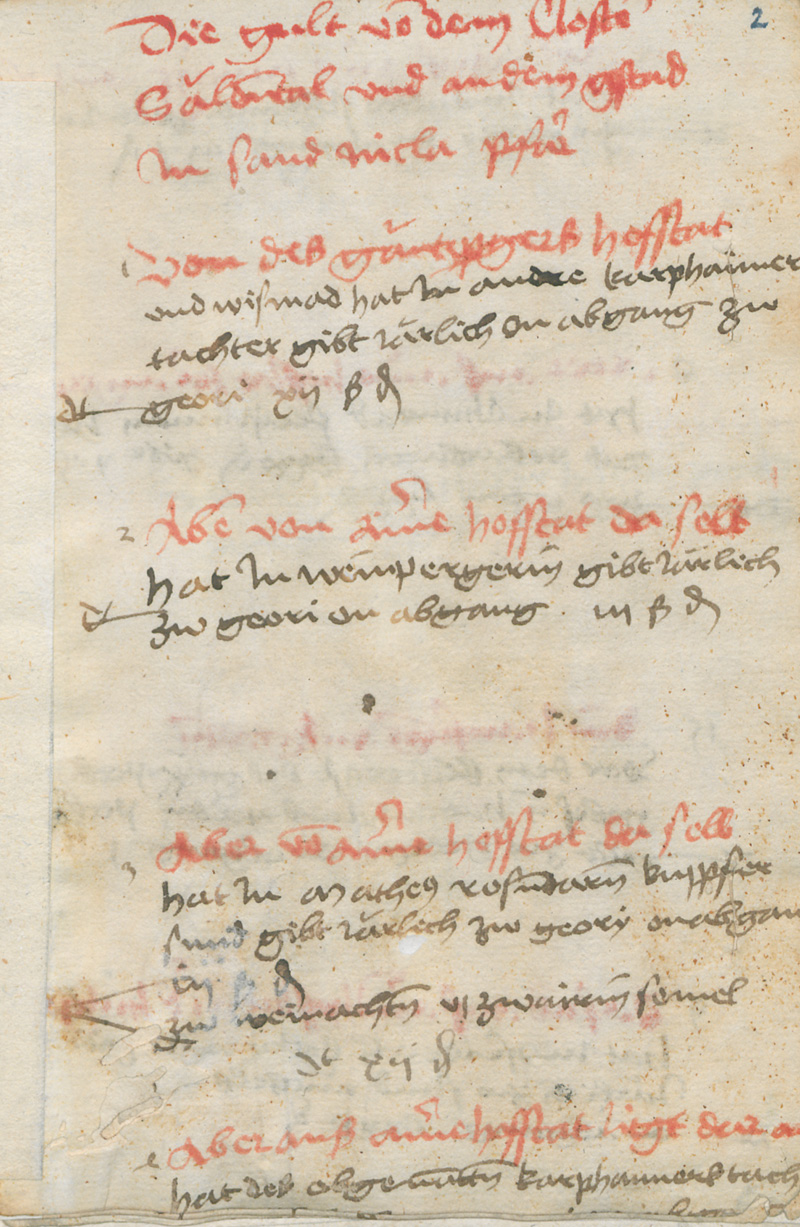 2
Die gult vō dem Closte
Säldn̄tal vnd an dem gstad
In sand nicla pfar̄
1 Von des gärtzpgers hofstat
vnd wismad hat In andre karphaimer
tachter gibt Järlich on abgang zw
dt geori xij ß ₰
2 Aber von ain̄e hoffstat da selb
hat In weinpergerin gibt Järlich
dt zw geori on abgang iij ß ₰
3 Aber vō ain̄e hoffstat da selb
hat In Matheus
sun gibt Järlich zw geory on abgan
iij ß ₰
zw weinachtn̄ vj zwairin semel
dt xij ₰
4 Aber aus ain̄e hoffstat ligt dar a
hat des obgenātn̄ karphaimers tach